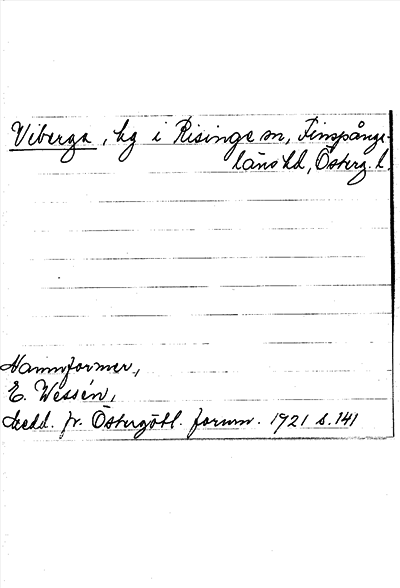 Viberga, hg i Risinge sn, Finspånga-
läns hd, Österg. l.
Namnformer,
E. Wessén,
Medd. fr. Östergötl. fornm. 1921 s. 141